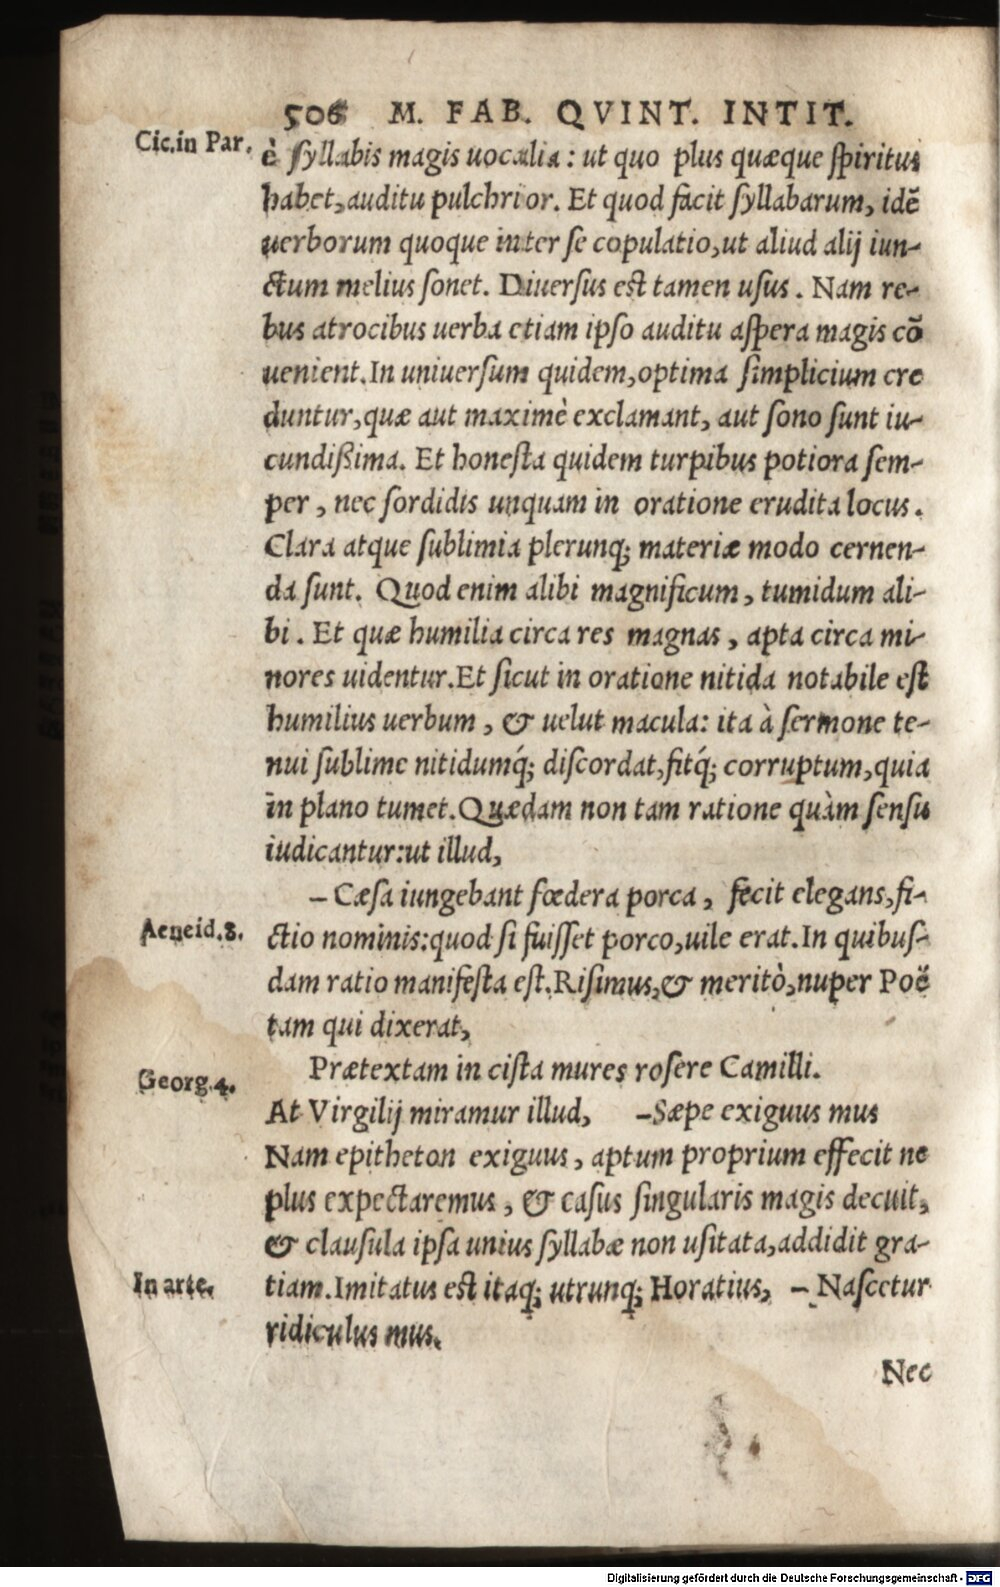 506 M. FAB. QVINT. INTIT.
Cic.in Par.
è syllabis magis uocalia: ut quo plus quæque spiritus
habet, auditu pulchrior. Et quod facit syllabarum, idẽ
uerborum quoque inter se copulatio, ut aliud alij iun-
ctum melius sonet. Diuersus est tamen usus. Nam re-
bus atrocibus uerba etiam ipso auditu aspera magis cõ
uenient. In uniuersum quidem, optima simplicium cre
duntur, quæ aut maximè exclamant, aut sono sunt iu-
cundißima. Et honesta quidem turpibus potiora sem-
per, nec sordidis unquam in oratione erudita locus.
Clara atque sublimia plerunq; materiæ modo cernen-
da sunt. Quod enim alibi magnificum, tumidum ali-
bi. Et quæ humilia circa res magnas, apta circa mi-
nores uidentur. Et sicut in oratione nitida notabile est
humilius uerbum, & uelut macula: ita à sermone te-
nui sublime nitidumq́; discordat, fitq́; corruptum, quia
in plano tumet. Quædam non tam ratione quàm sensu
iudicantur: ut illud,
– Cæsa iungebant fœdera porca, fecit elegans, fi-
Aeneid.8.
ctio nominis: quod si fuisset porco, uile erat. In quibus-
dam ratio manifesta est. Risimus, & meritò, nuper Poë
tam qui dixerat,
Prætextam in cista mures rosere Camilli.
Georg.4.
At Virgilij miramur illud, –Sæpe exiguus mus
Nam epitheton exiguus, aptum proprium effecit ne
plus expectaremus, & casus singularis magis decuit,
& clausula ipsa unius syllabæ non usitata, addidit gra-
In arte.
tiam. Imitatus est itaq; utrunq; Horatius, – Nascetur
ridiculus mus.
Nec
Digitalisierung gefördert durch die Deutsche Forschungsgemeinschaft - DFG